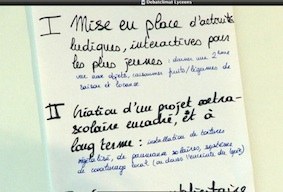 Debatclimat Lyceens
I Mise en place d'activités
ludiques, interactives pour
les plus jeunes : donner une 2ème
vie aux objets, consommer fruits/légumes de
saison et locaux.
II Création d'un projet extra-
scolaire encadré, et à
long terme : installation de toitures
végétalisé, de panneaux solaires, système
de covoiturage local (ou dans l'enceinte du lycée)